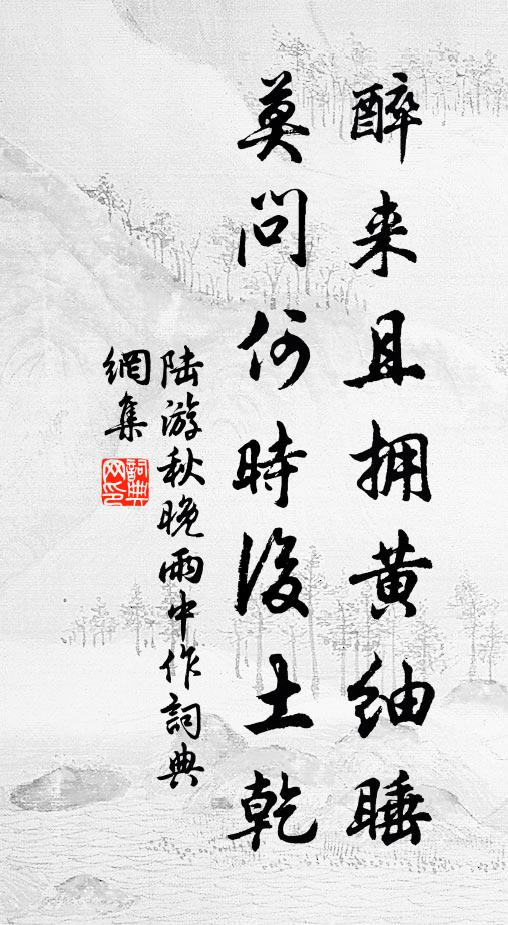 醉来且拥黄紬睡
莫问何时后土乾
陆游秋晚雨中作词典
網集
詞典
网印